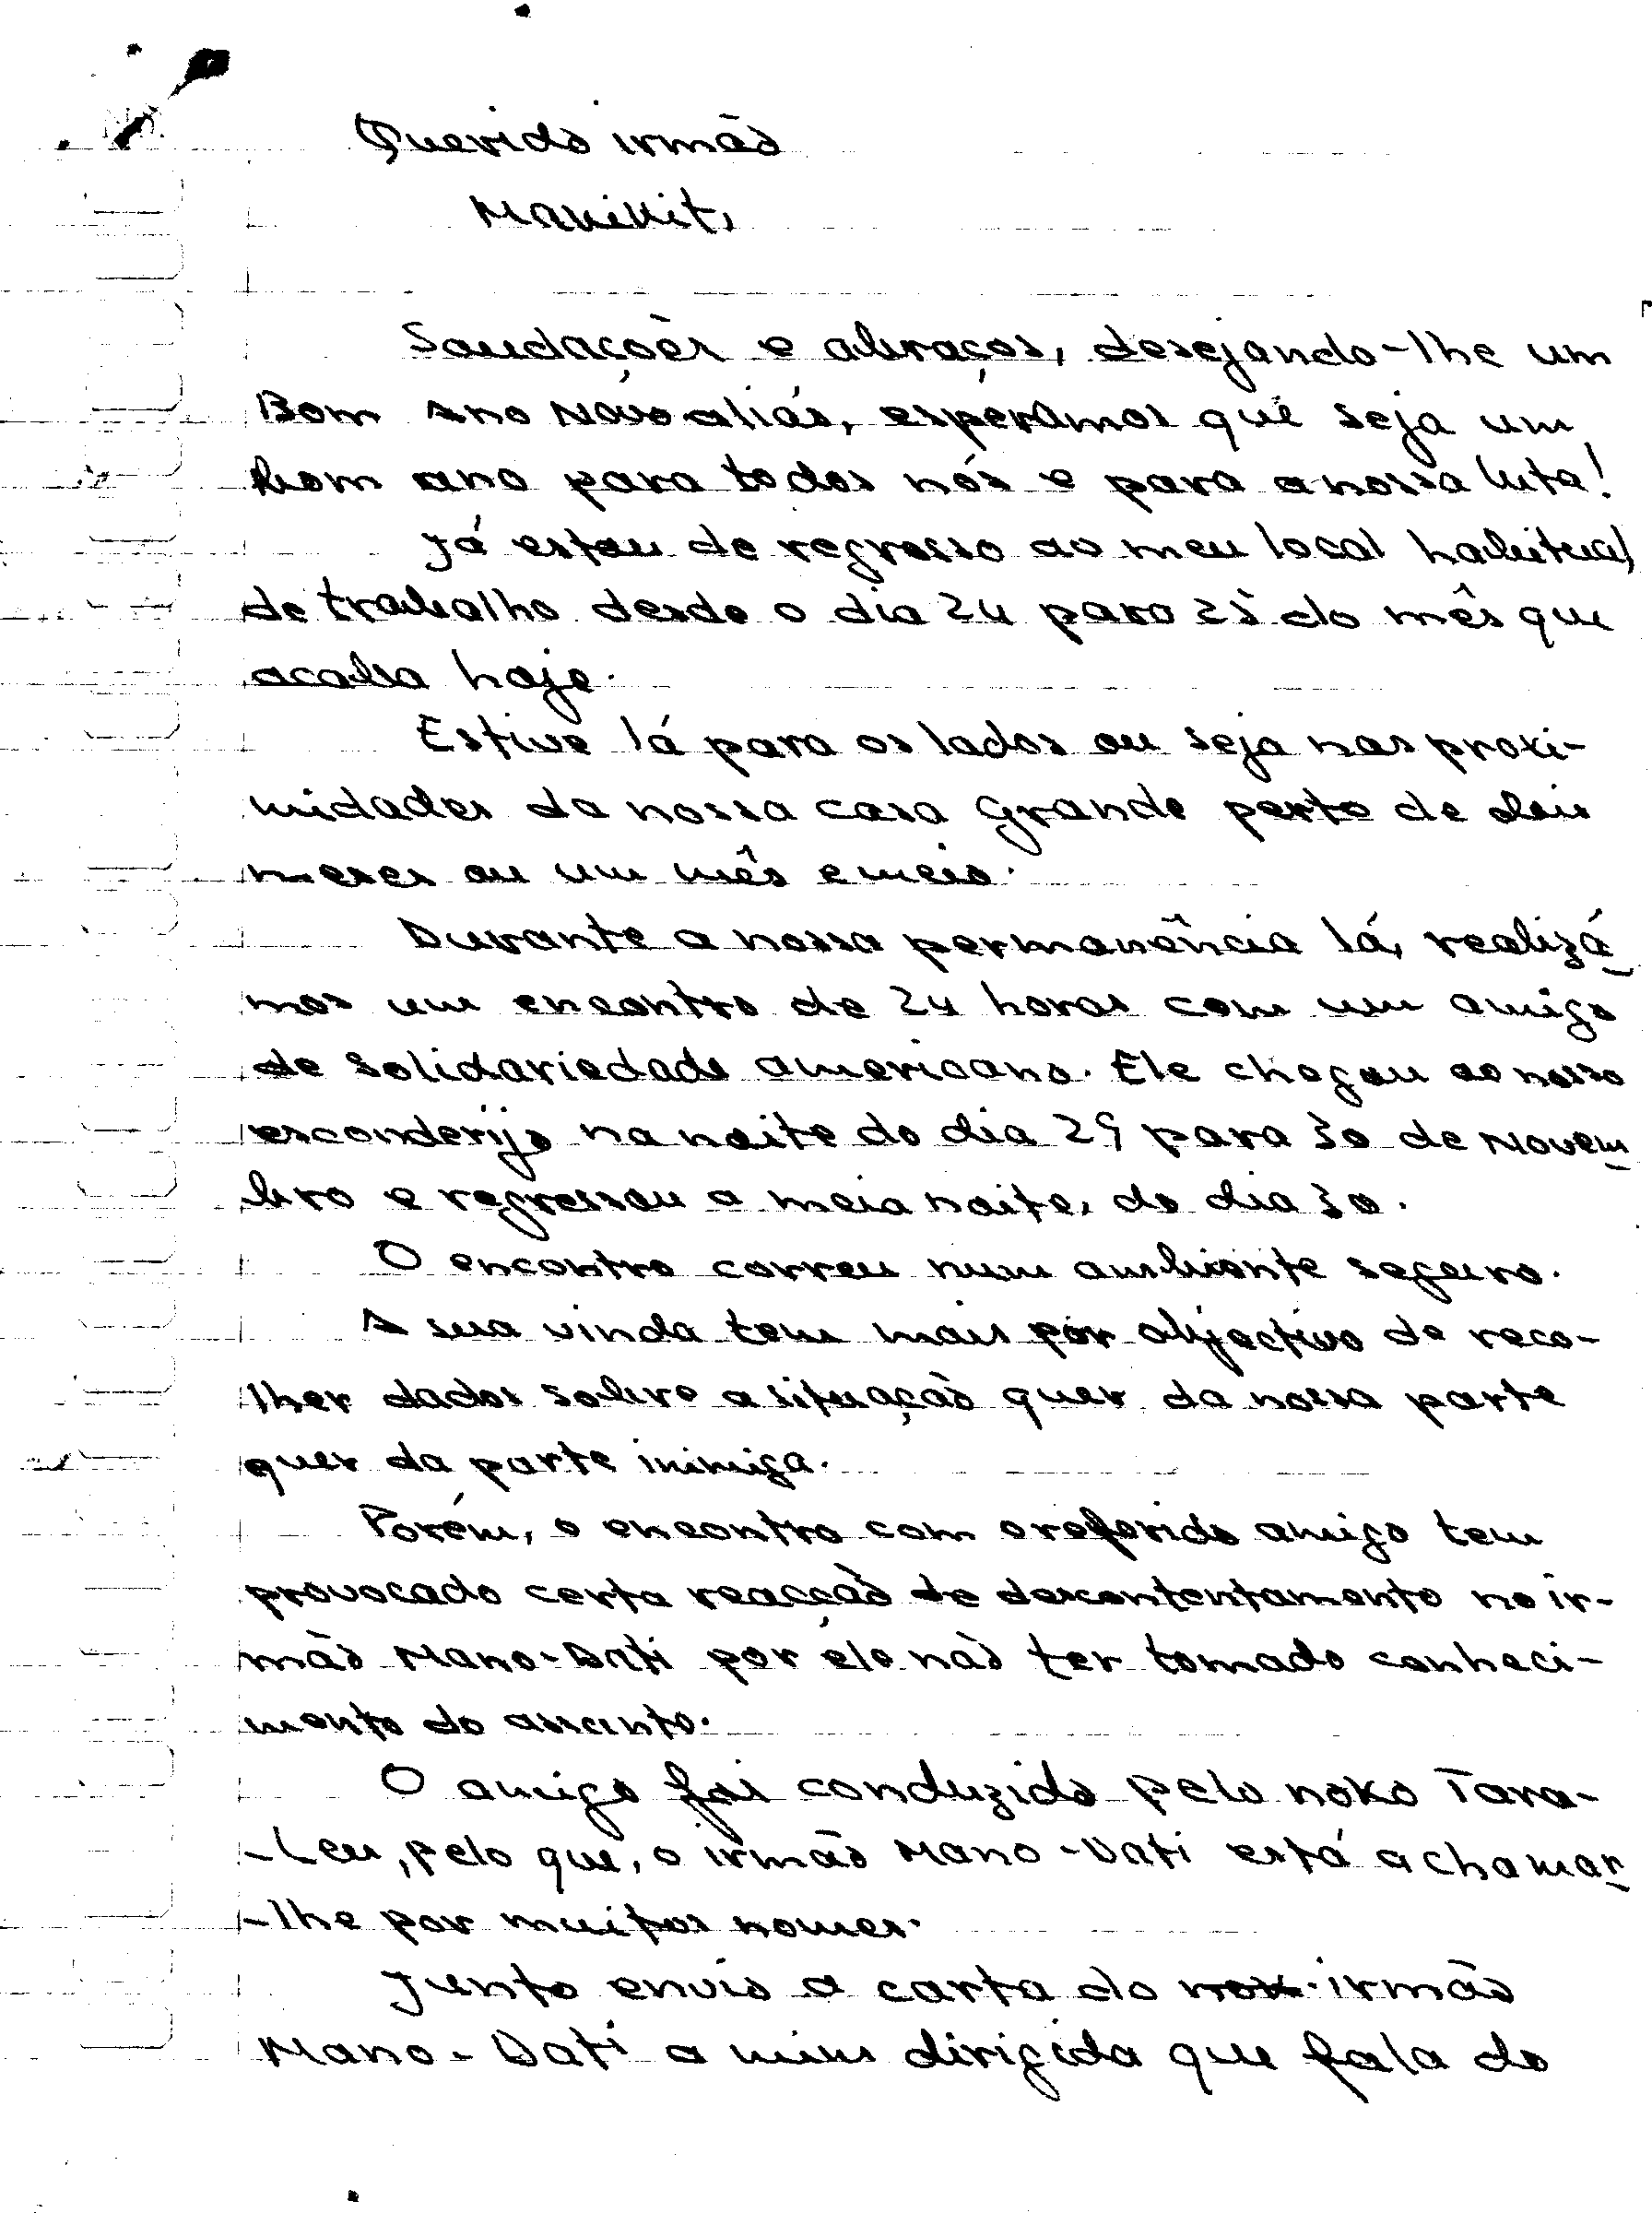 Querido irmão
Maukuit,
Saudações e abraços, desejando-lhe um
Bom Ano Novo aliás, esperamos que seja um
bom ano para todos nós e para a nossa luta!
Já estou de regresso ao meu local habitual
de trabalho desde o dia 24 para 25 do mês que
acaba hoje.
Estive lá para os lados ou seja nas proxi-
midades da nossa casa grande perto de dois
meses ou um mês e meio.
Durante a nossa permanência lá, realizá
mos um encontro de 24 horas com um amigo
de solidariedade americano. Ele chegou ao nosso
esconderijo na noite do dia 29 para 30 de Novem
bro e regressou a meia noite, do dia 30.
O encontro correu num ambiente seguro.
A sua vinda tem mais por objectivo de reco-
lher dados sobre a situação quer da nossa parte
quer da parte inimiga.
Porém, o encontro com o referido amigo tem
provocado certa reacção de descontentamento no ir-
mão Mano-Dati por ele não ter tomado conheci-
mento do assunto.
O amigo foi conduzido pelo noko Tara-
-Leu, pelo que, o irmão Mano-Dati está a chamar
-lhe por muitos nomes.
Junto envio a carta do nok. irmão
Mano-Dati a mim dirigida que fala do